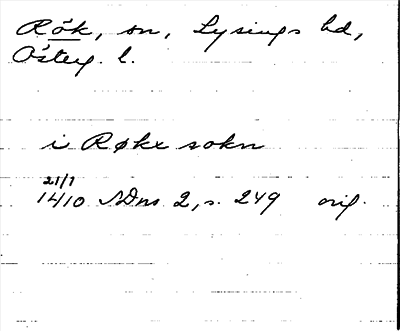 Rök, sn, Lysings hd,
Österg. l.
i Røkx sokn
21/7
1410 SDns 2, s. 249 orig.